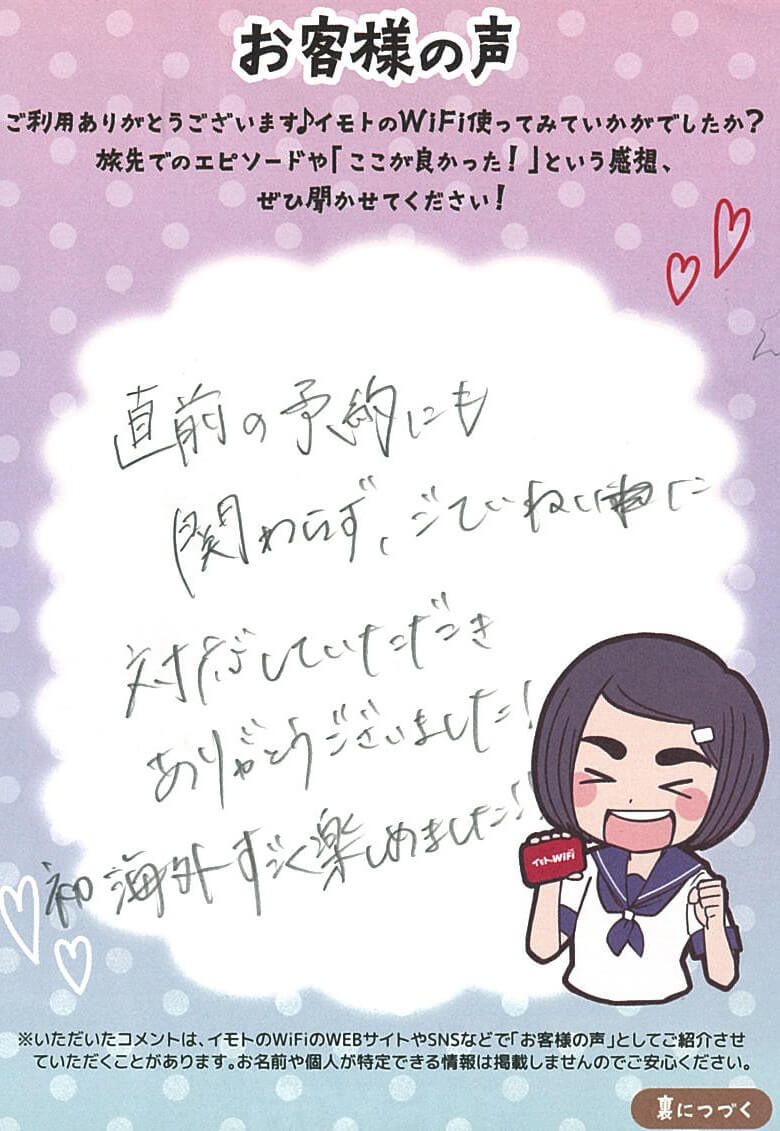 お客様の声
ご利用ありがとうございます♪イモトのWiFi使ってみていかがでしたか？
旅先でのエピソードや「ここが良かった！」という感想、
ぜひ聞かせてください！
直前の予約にも
関わらず、ごていねいに
対応していただき
ありがとうございました！
初海外すごく楽しめました！！
イモトのWiFi
※いただいたコメントは、イモトのWiFiのWEBサイトやSNSなどで「お客様の声」としてご紹介させ
ていただくことがあります。お名前や個人が特定できる情報は掲載しませんのでご安心ください。
裏につづく